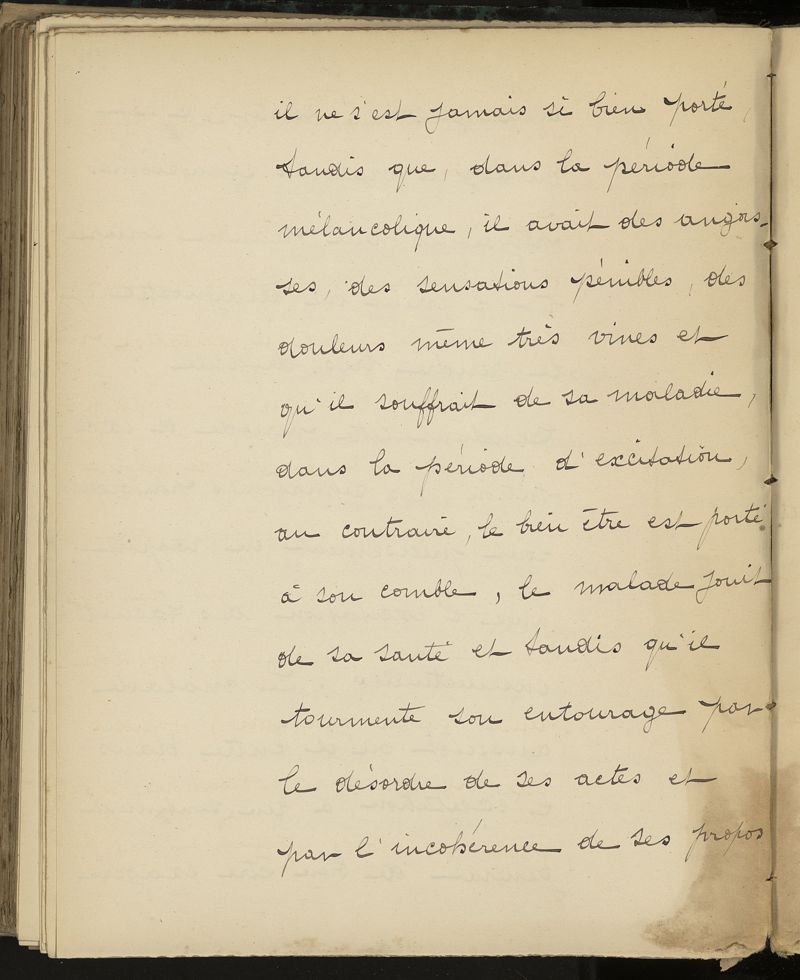 il ne s'est jamais si bien porté,
tandis que, dans la période
mélancolique, il avait des angois-
ses, des sensations pénibles, des
douleurs même très vives et
qu'il souffrait de sa maladie,
dans la période d'excitation,
au contraire, le bien être est porté
à son comble, le malade jouit
de sa santé et tandis qu'il
tourmente son entourage par
le désordre de ses actes et
par l'incohérence de ses propos